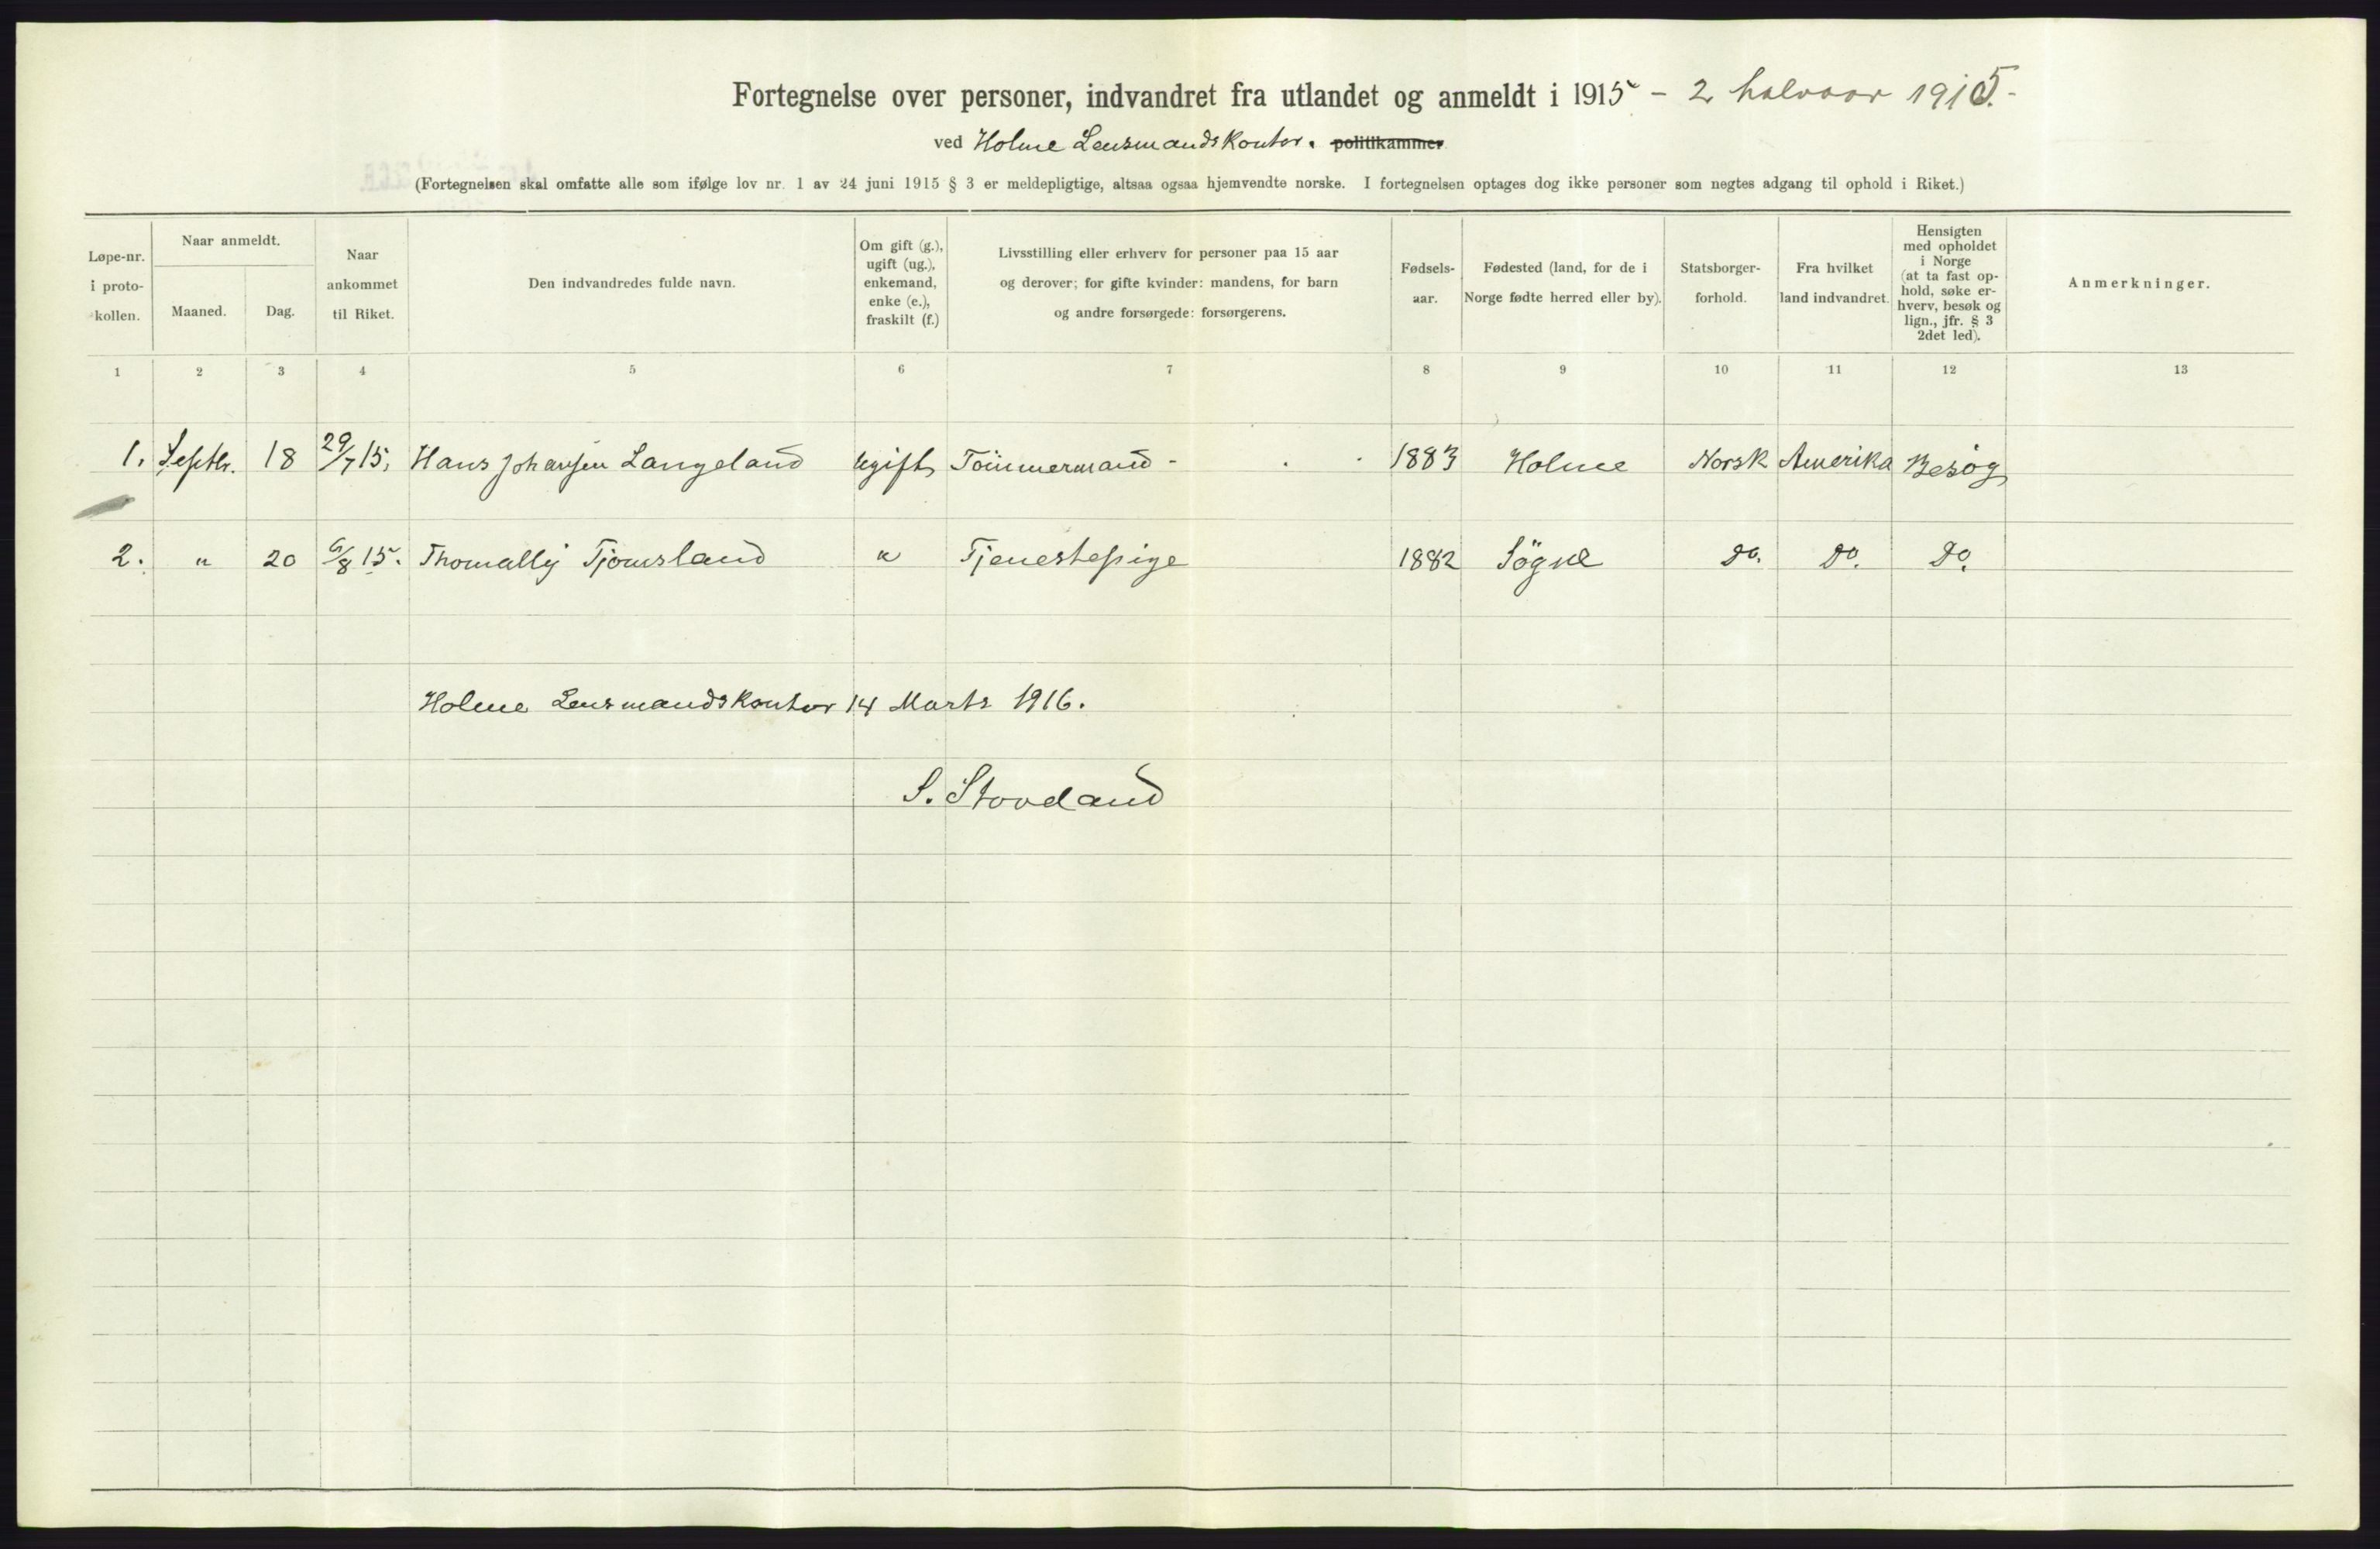 Fortegnelse over personer, indvandret fra utlandet og anmeldt i 1915 - 2 halvaar 1915.-
ved Holme Lensmandskontor. politikammer
(Fortegnelsen skal omfatte alle som ifølge lov nr. 1 av 24 juni 1915 § 3 er meldepligtige, altsaa ogsaa hjemvendte norske. I fortegnelsen optages dog ikke personer som negtes adgang til ophold i Riket.)
Løpe-nr.
i proto-
kollen.
Naar anmeldt.
Maaned.
Dag.
Naar
ankommet
til Riket.
Den indvandredes fulde navn.
Om gift (g.),
ugift (ug.),
enkemand,
enke (e.),
fraskilt (f.)
Livsstilling eller erhverv for personer paa 15 aar
og derover; for gifte kvinder: mandens, for barn
og andre forsørgede: forsørgerens.
Fødsels-
aar.
Fødested (land, for de i
Norge fødte herred eller by).
Statsborger-
forhold.
Fra hvilket
land indvandret.
Hensigten
med opholdet
i Norge
(at ta fast op-
hold, søke er-
hverv, besøk og
lign., jfr. § 3
2det led).
Anmerkninger.
1 2 3 4 5 6 7 8 9 10 11 12 13
1. Septbr. 18 29/7 15. Hans Johansen Langeland ugift Tömmermand - 1883 Holme Norsk Amerika Besög
2. " 20 6/8 15. Tjomsland " Tjenestepige 1882 Sögne Do. Do. Do.
Holme Lensmandskontor 14 Marts 1916.
S. Stoveland